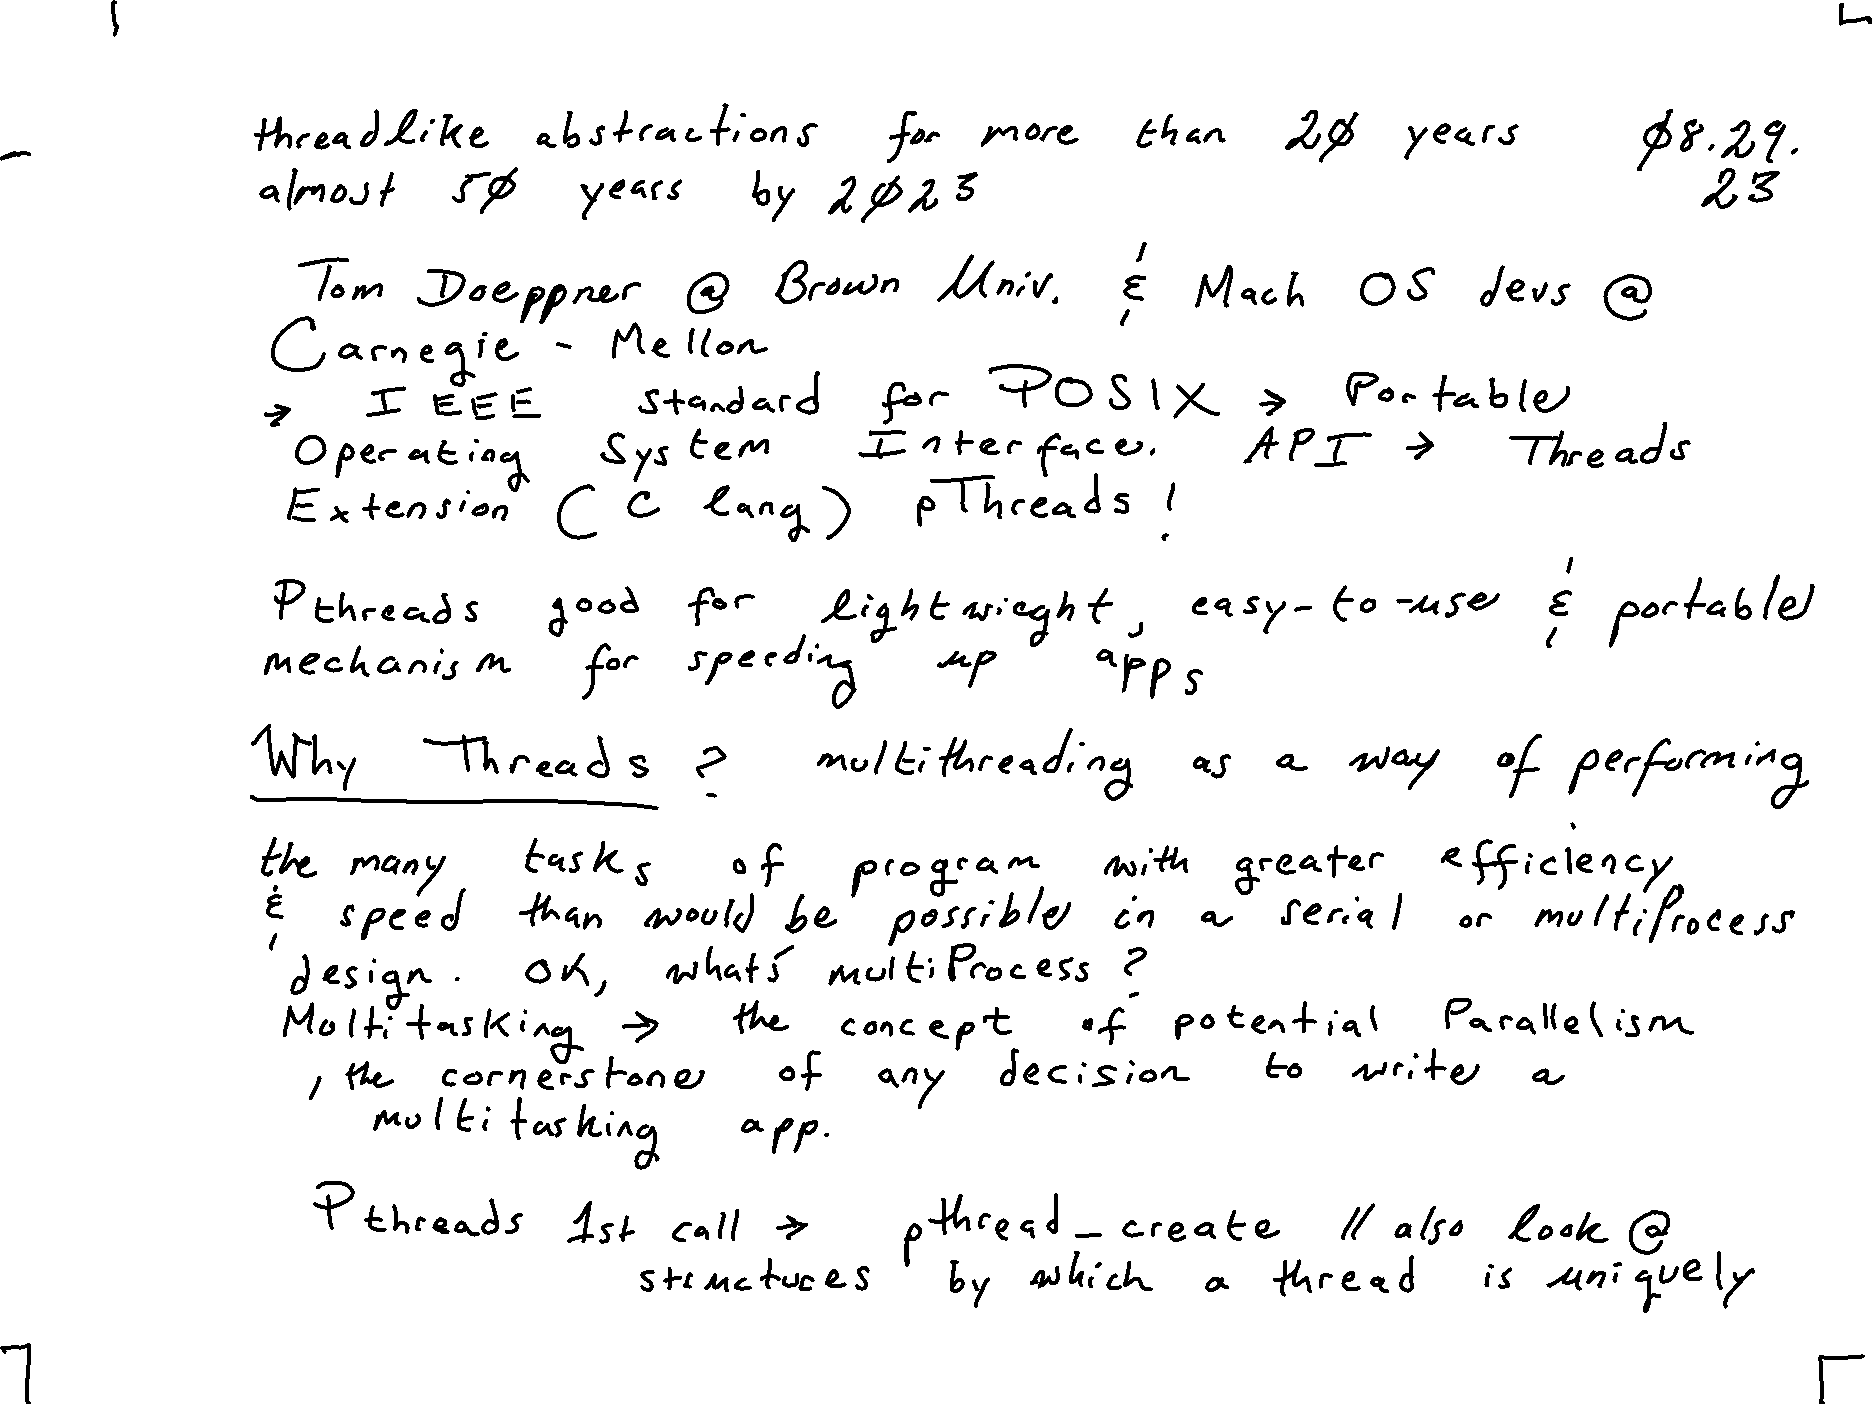 threadlike abstractions for more than 2∅ years ∅8.29.
almost 5∅ years by 2∅23 23
Tom Doeppner @ Brown Univ. & Mach OS devs @
Carnegie - Mellon
→ IEEE standard for POSIX → Portable
Operating System Interface. API → Threads
Extension (C lang) pThreads!
Pthreads good for lightwieght, easy-to-use & portable
mechanism for speeding up apps
Why Threads? multithreading as a way of performing
the many tasks of program with greater efficiency
& speed than would be possible in a serial or multiProcess
design. OK, what's multiProcess?
Multitasking → the concept of potential Parallelism
, the cornerstone of any decision to write a
multitasking app.
Pthreads 1st call → pthread_create // also look @
structures by which a thread is uniquely